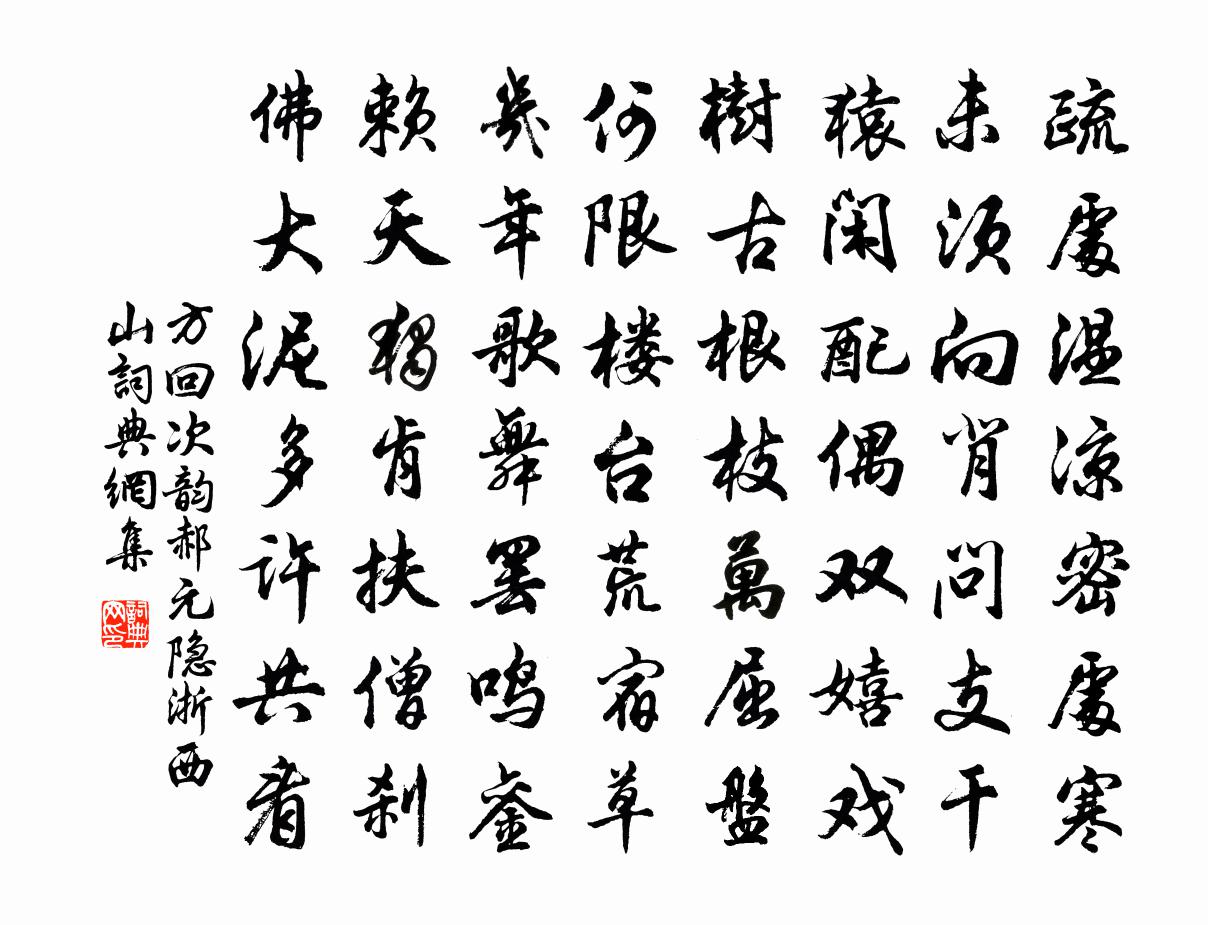 疏處温凉密處寒
未须向肖问支干
猿闲配偶双嬉戏
樹古根枝萬屈盤
何限楼台荒宿草
幾年歌舞罢鸣銮
赖天獨肯扶僧刹
佛大泥多许共看
方回次韵郝元隐浙西
山詞典網集
詞典网印